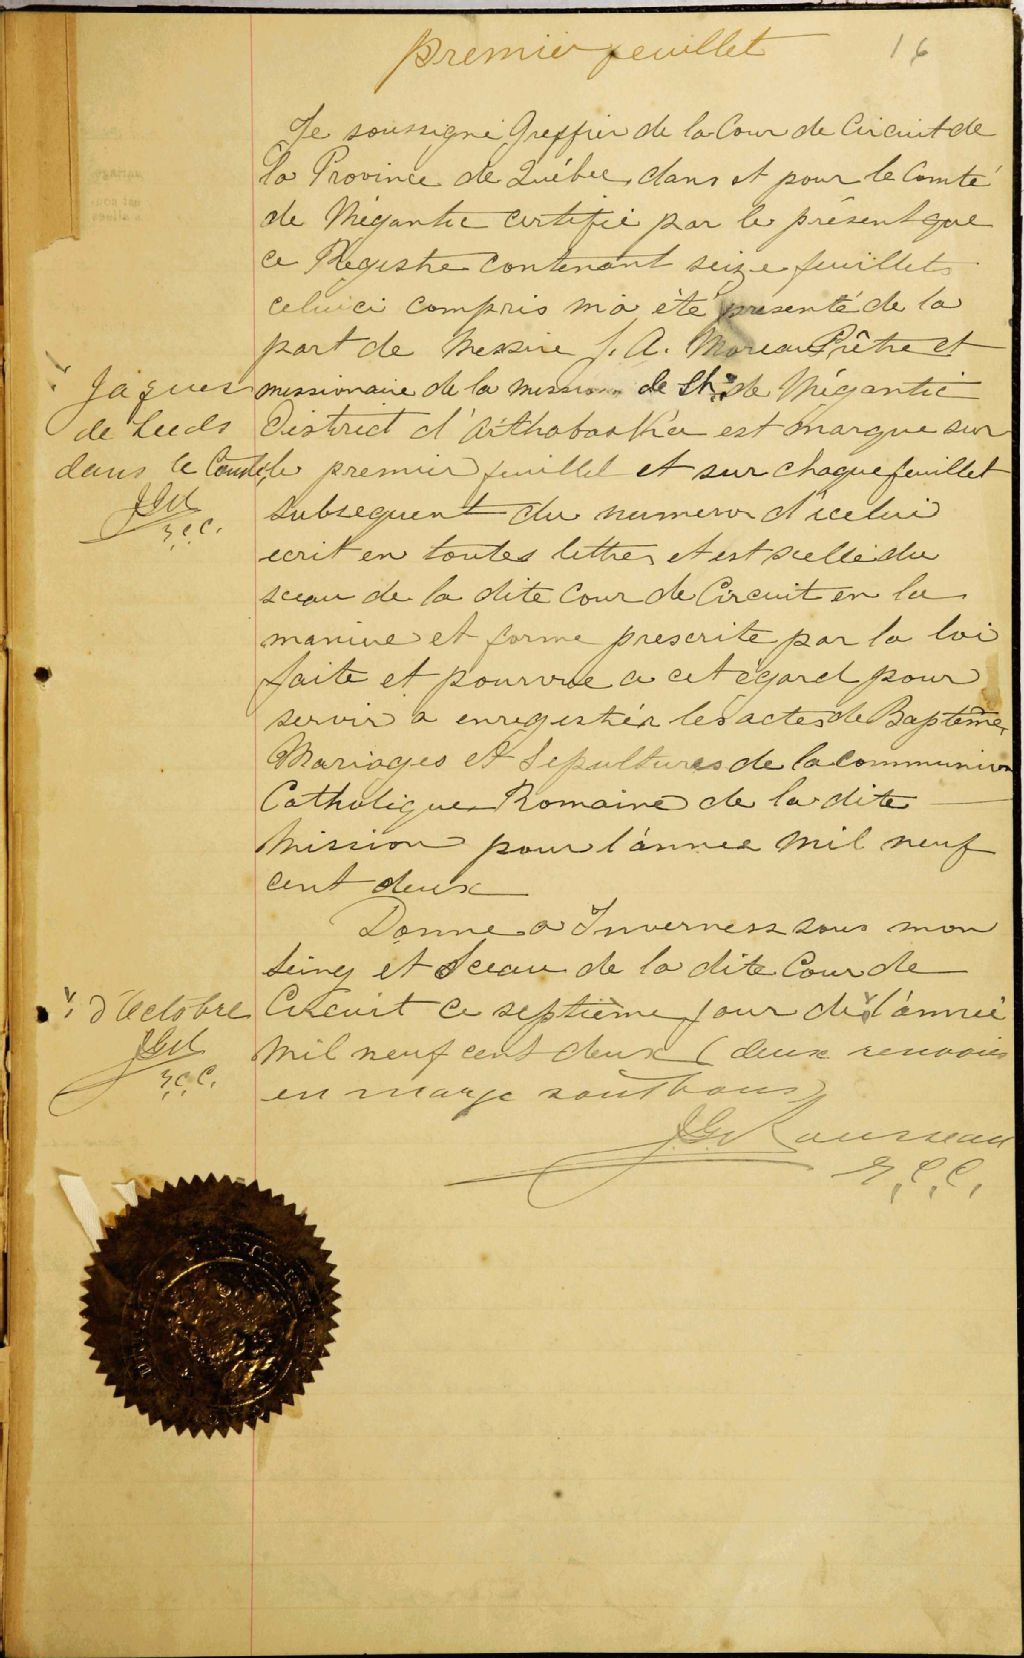 premier feuillet
16
Je soussigné Greffier de la Cour de Circuit de
la Province de Québec, dans et pour le Comté
de Mégantic certifie par le présent que
ce Registre contenant seize feuillets
celui ci compris m'a été présenté de la
part de Messire J. A. Moreau Prêtre et
missionaire de la mission de St. de Mégantic
District d'Arthabaska est marque sur
le premier feuillet et sur chaque feuillet
subsequent du numero d'icelui
ecrit en toutes lettres et est scellé du
sceau de la dite Cour de Circuit en la
maniere et forme prescrite par la loi
faite et pourvue a cet égard pour
servir a enregistrer les actes de Baptême,
Mariages et Sepultures de la communion
Catholique Romaine de la dite
Mission pour l'année mil neuf
cent deux
Donne a Inverness sous mon
Seing et Sceau de la dite Cour de
Circuit ce septième jour de l'année
Mil neuf cent deux (deux renvoies
en marge sont bons)
JG Rousseau
G.C.C.
Jaques
de Leeds
dans le Comté
JGR
G.C.C.
d'Octobre
JGR
G.C.C.